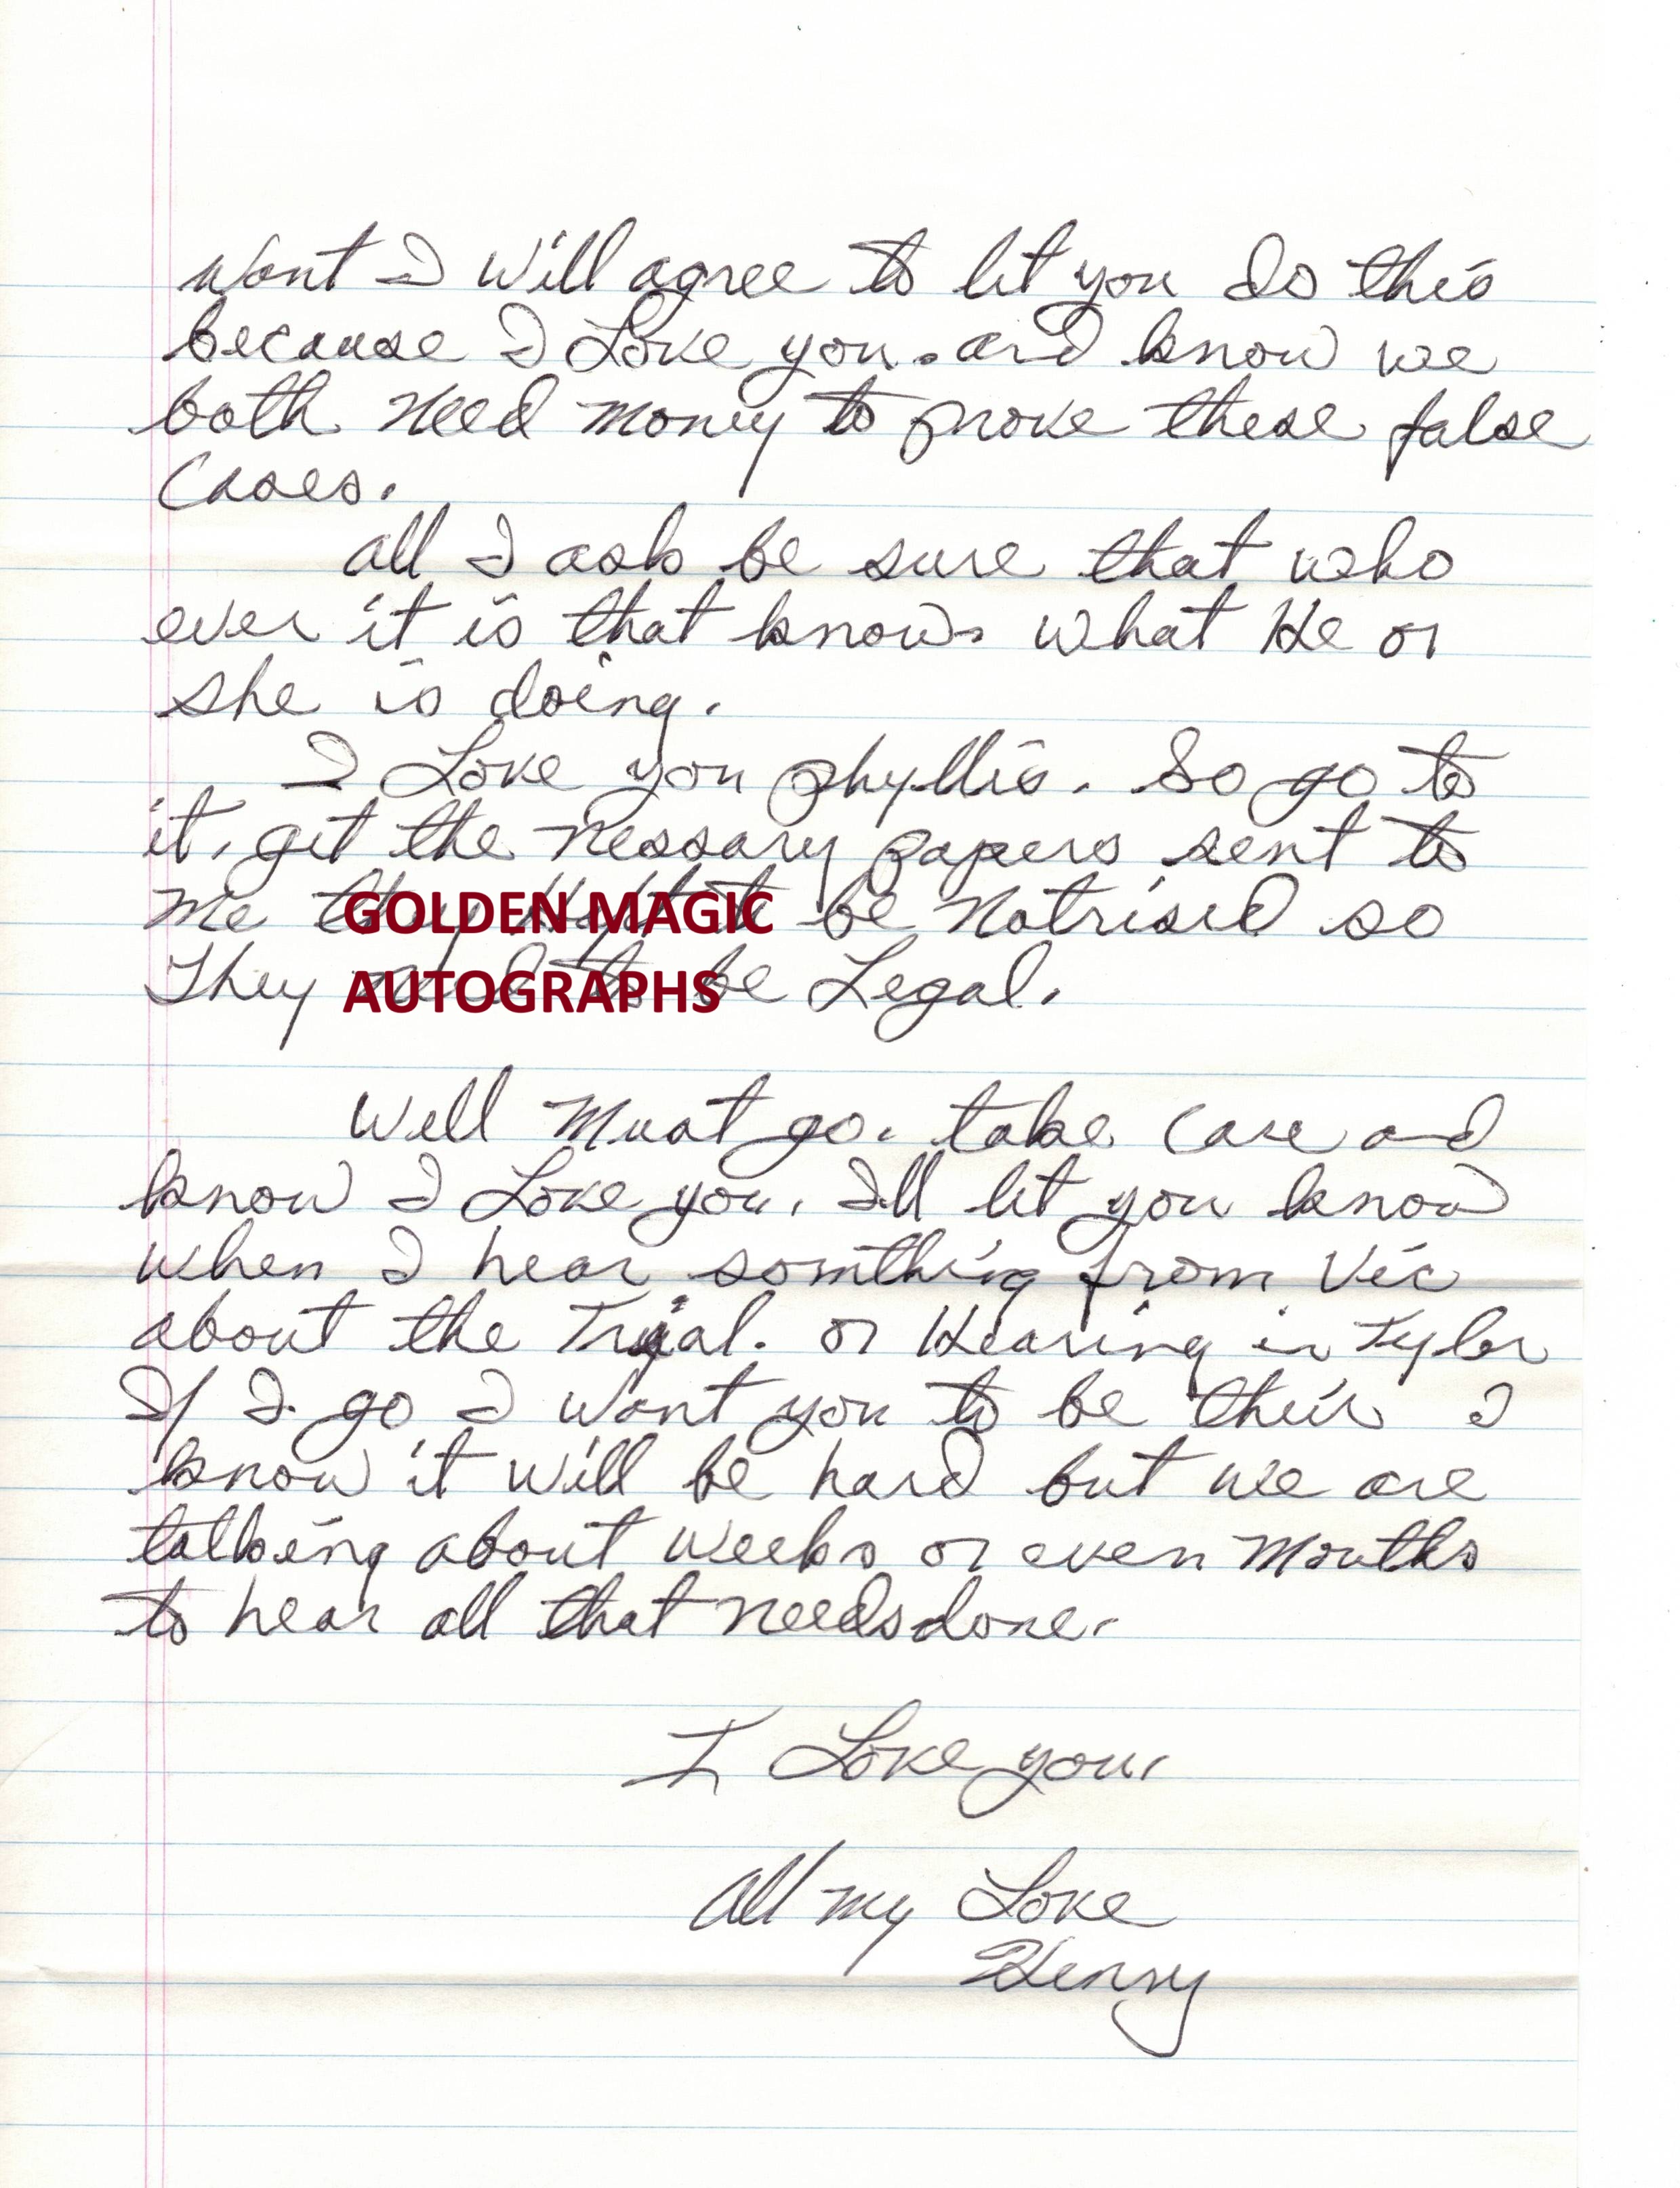 want I will agree to let you do this
because I Love you. and know we
both need money to prove these false
Cases.
all I ask be sure that who
ever it is that knows what He or
she is doing.
I Love you phyllis. So go to
it, get the nessary papers sent to
me they be Notrised so
GOLDEN MAGIC
They to be Legal.
AUTOGRAPHS
Well Must go. take Care and
know I Love you, Ill let you know
when I hear somthing from Vic
about the Trial. or Hearing in Tyler
If I go I want you to be their I
know it will be hard but we are
talking about weeks or even Months
to hear all that needs done.
I Love you,
all my Love
Henry